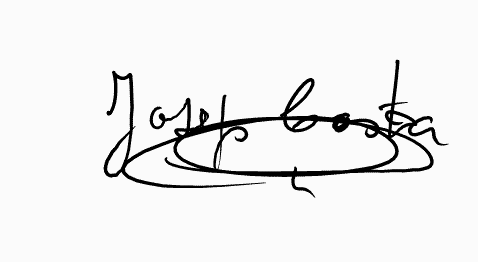 Josep Costa